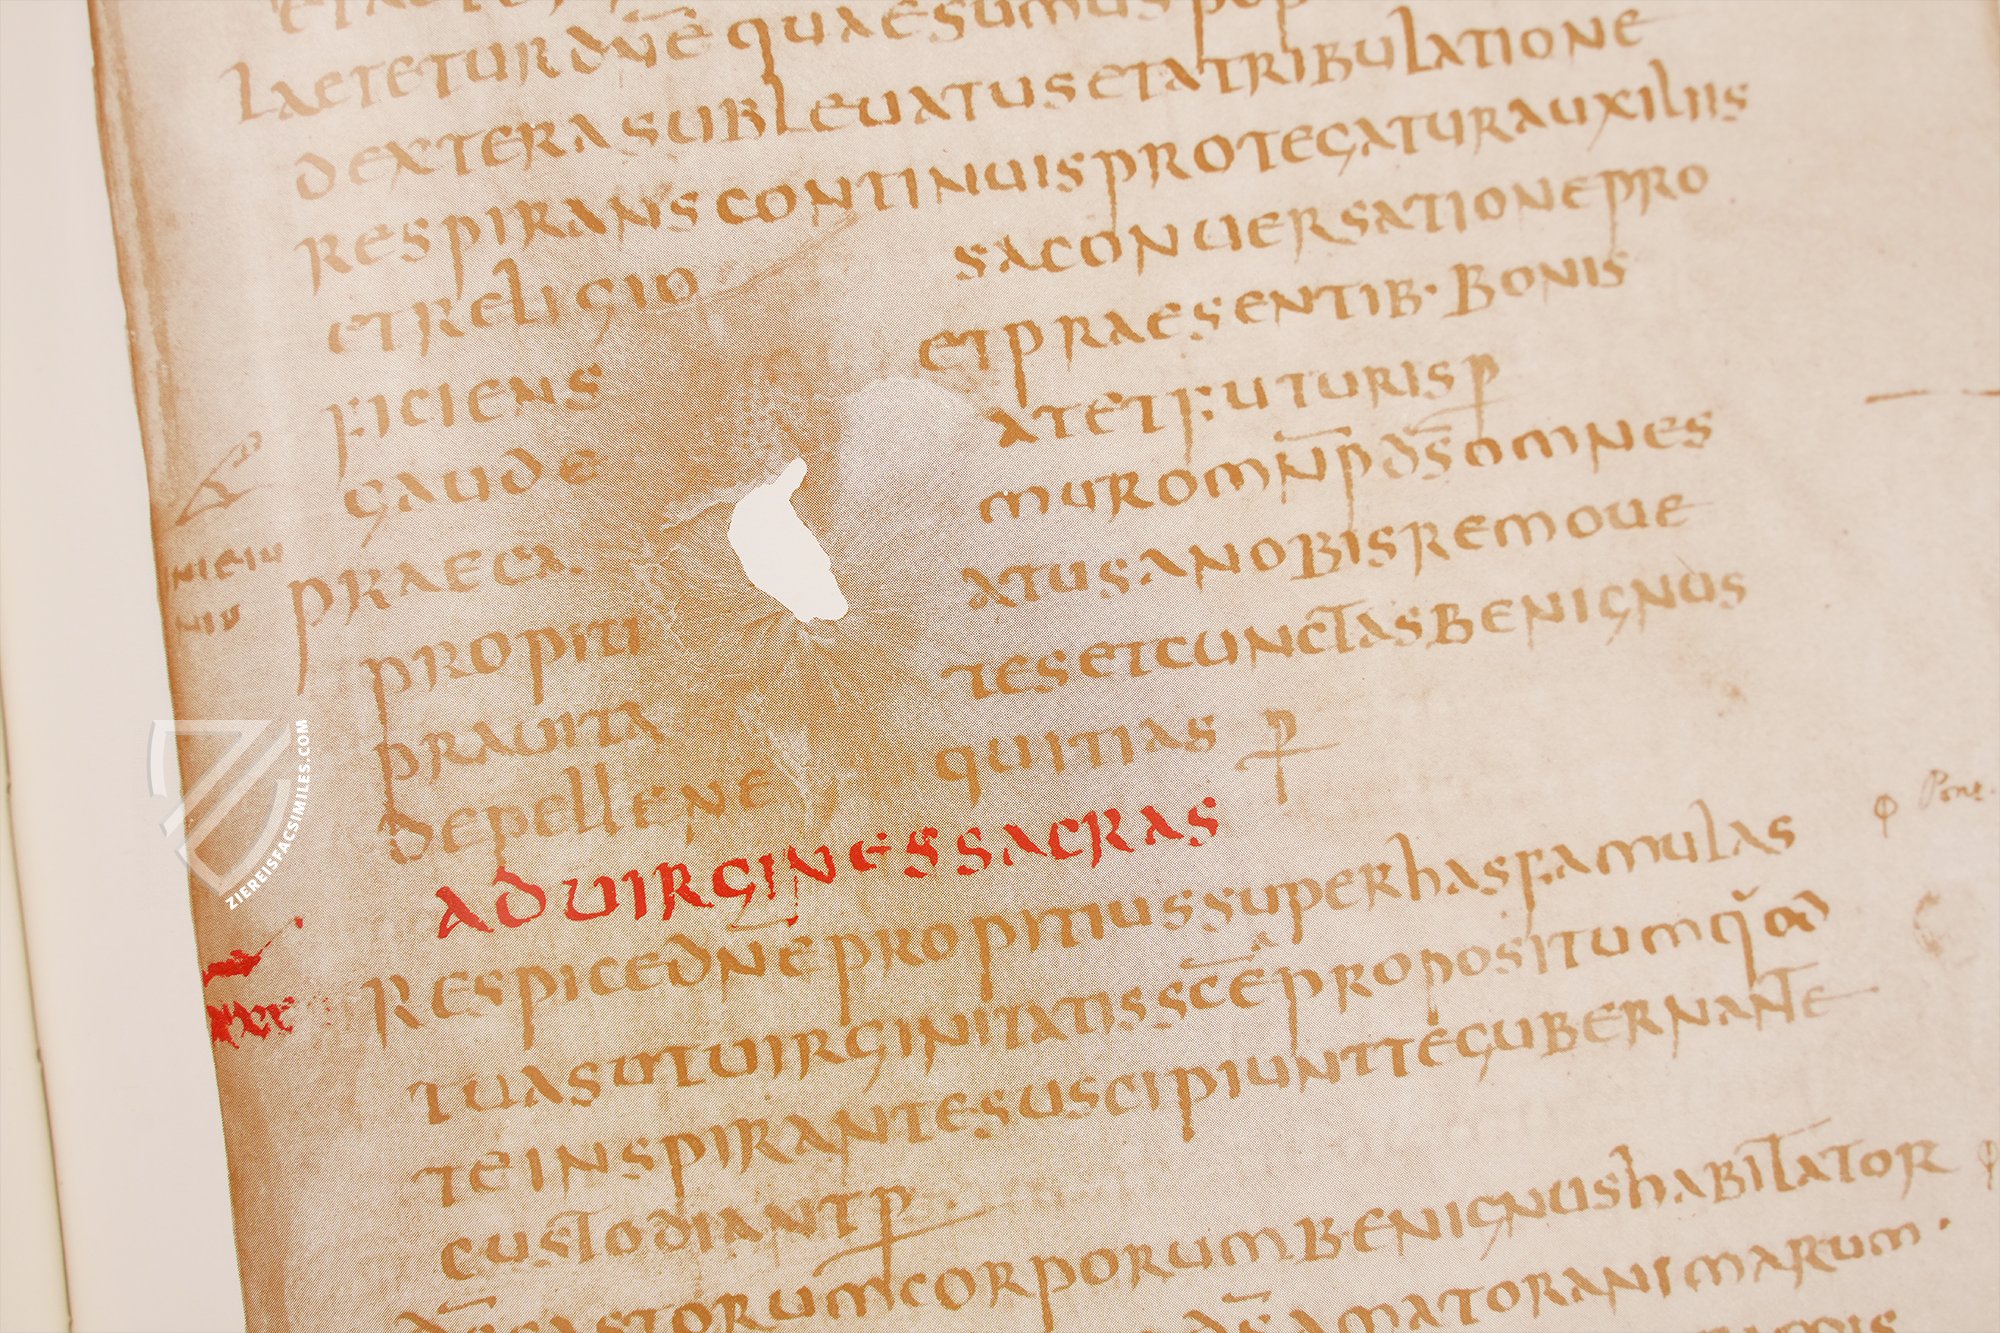 LAETETUR DN̄E QUAESUMUS POP
DEXTERA SUBLEUATUS ET A TRIBULATIONE
RESPIRANS CONTINUIS PROTEGATUR AUXILIIS
ET RELIGIO SA CONUERSATIONE PRO
FICIENS ET PRAESENTIB· BONIS
GAUDE AT ET FUTURIS P
PRAECA MUR OMN̄P D̄S OMNES
PROPITI ATUS A NOBIS REMOUE
PRAUITA TES ET CUNCTAS BENIGNUS
DEPELLE NE QUITIAS P
AD UIRGINES SACRAS
RESPICE DN̄E PROPITIUS SUPER HAS FAMULAS
TUAS UT UIRGINITATIS SC̄E PROPOSITUM QD
TE INSPIRANTE SUSCIPIUNT TE GUBERNANTE
CUSTODIANT P
D̄S CASTORUM CORPORUM BENIGNUS HABITATOR
D̄S AMATOR ANIMARUM·
ZIEREISFACSIMILES.COM